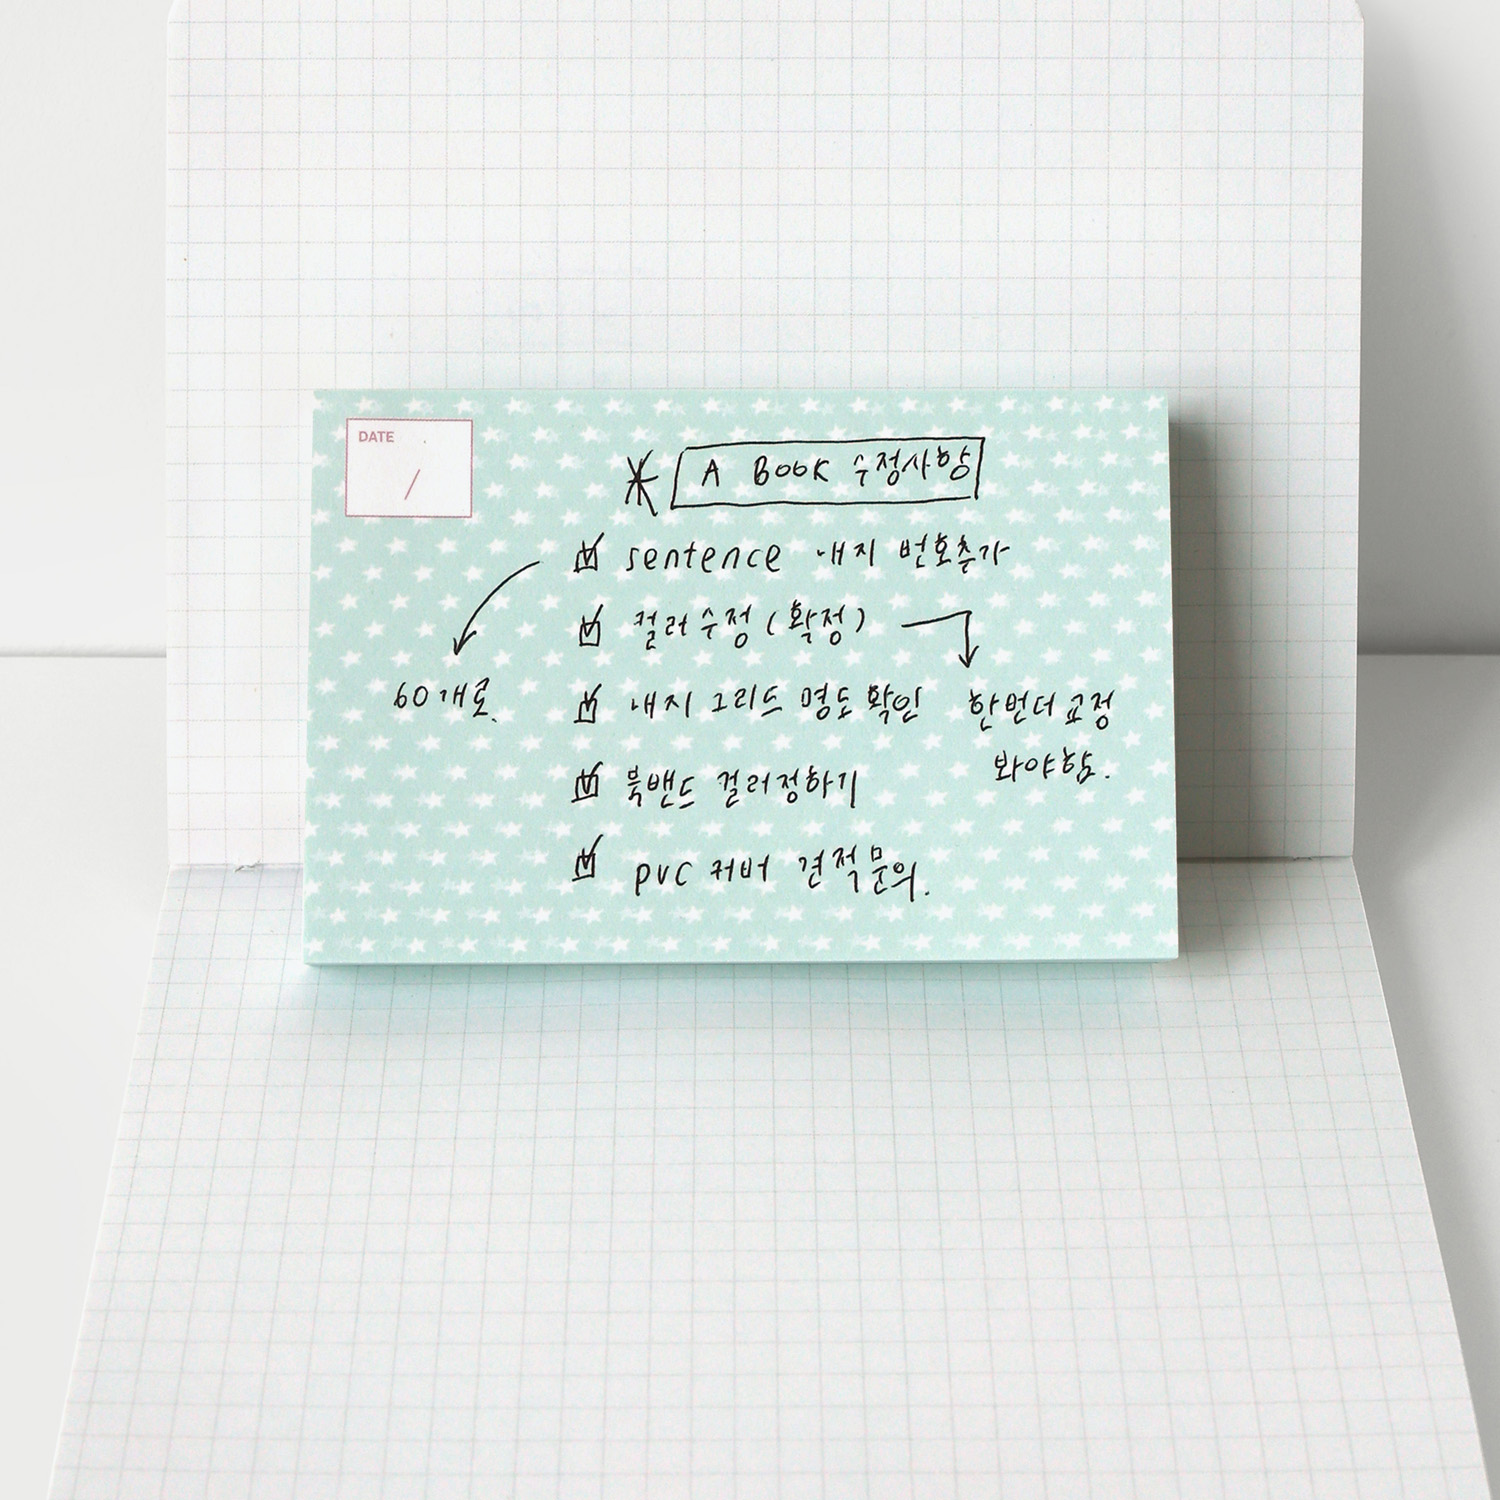 DATE
/
* A BOOK 수정사항
☑ sentence 내지 번호추가
60개로.
☑ 컬러수정(확정)
한번더 교정
봐야함.
☑ 내지 그리드 명도 확인
☑ 북밴드 컬러정하기
☑ pvc 커버 견적문의.